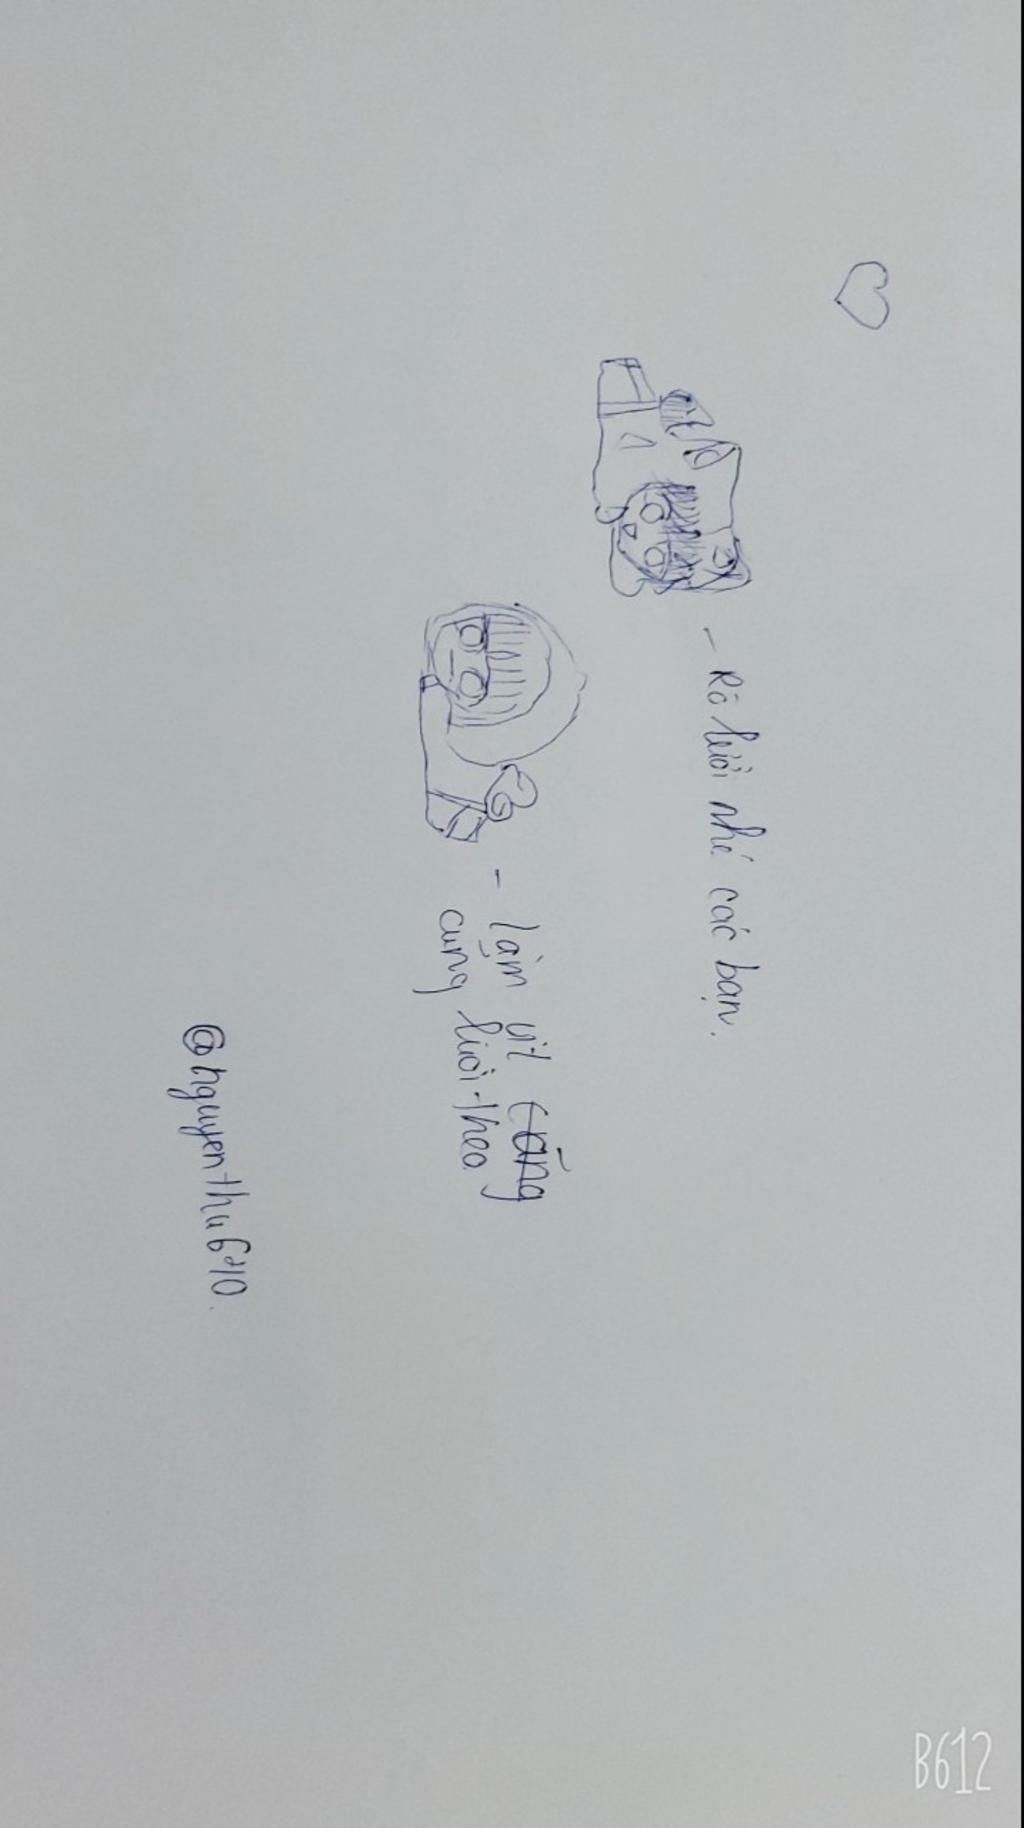 - Rô lười nhé các bạn.
- làm vịt cũng
cung lười theo
@nguyenthu6210.
B612